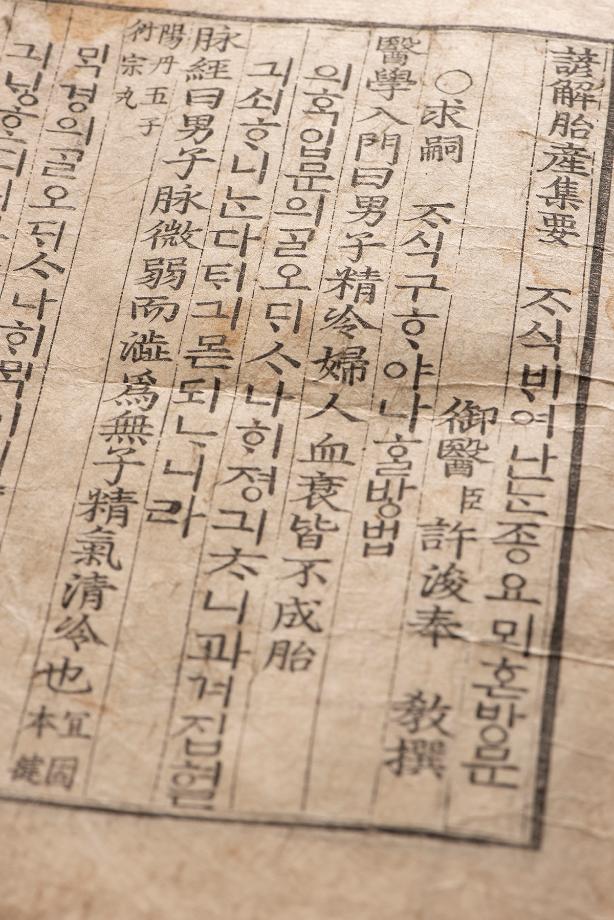 諺解胎産集要 ᄌᆞ식ᄇᆡ여난ᄂᆞᆫ죵요뫼혼방문
御醫臣許浚奉 敎撰
○求嗣 ᄌᆞ식구ᄒᆞ야나홀방법
醫學入門曰男子精冷婦人血衰皆不成胎
의ᄒᆞᆨ입문의ᄀᆞᆯ오ᄃᆡᄉᆞ나ᄒᆡ졍긔ᄎᆞ니과겨집혈
긔쇠ᄒᆞ니ᄂᆞᆫ다ᄐᆡ긔몯되ᄂᆞ니라
脉經曰男子脉微弱而澁爲無子精氣清冷也 宜固
本健
陽丹五子
衍宗丸
ᄆᆡᆨ경의ᄀᆞᆯ오ᄃᆡᄉᆞ나ᄒᆡᄆᆡᆨ이
긔닝ᄒᆞ